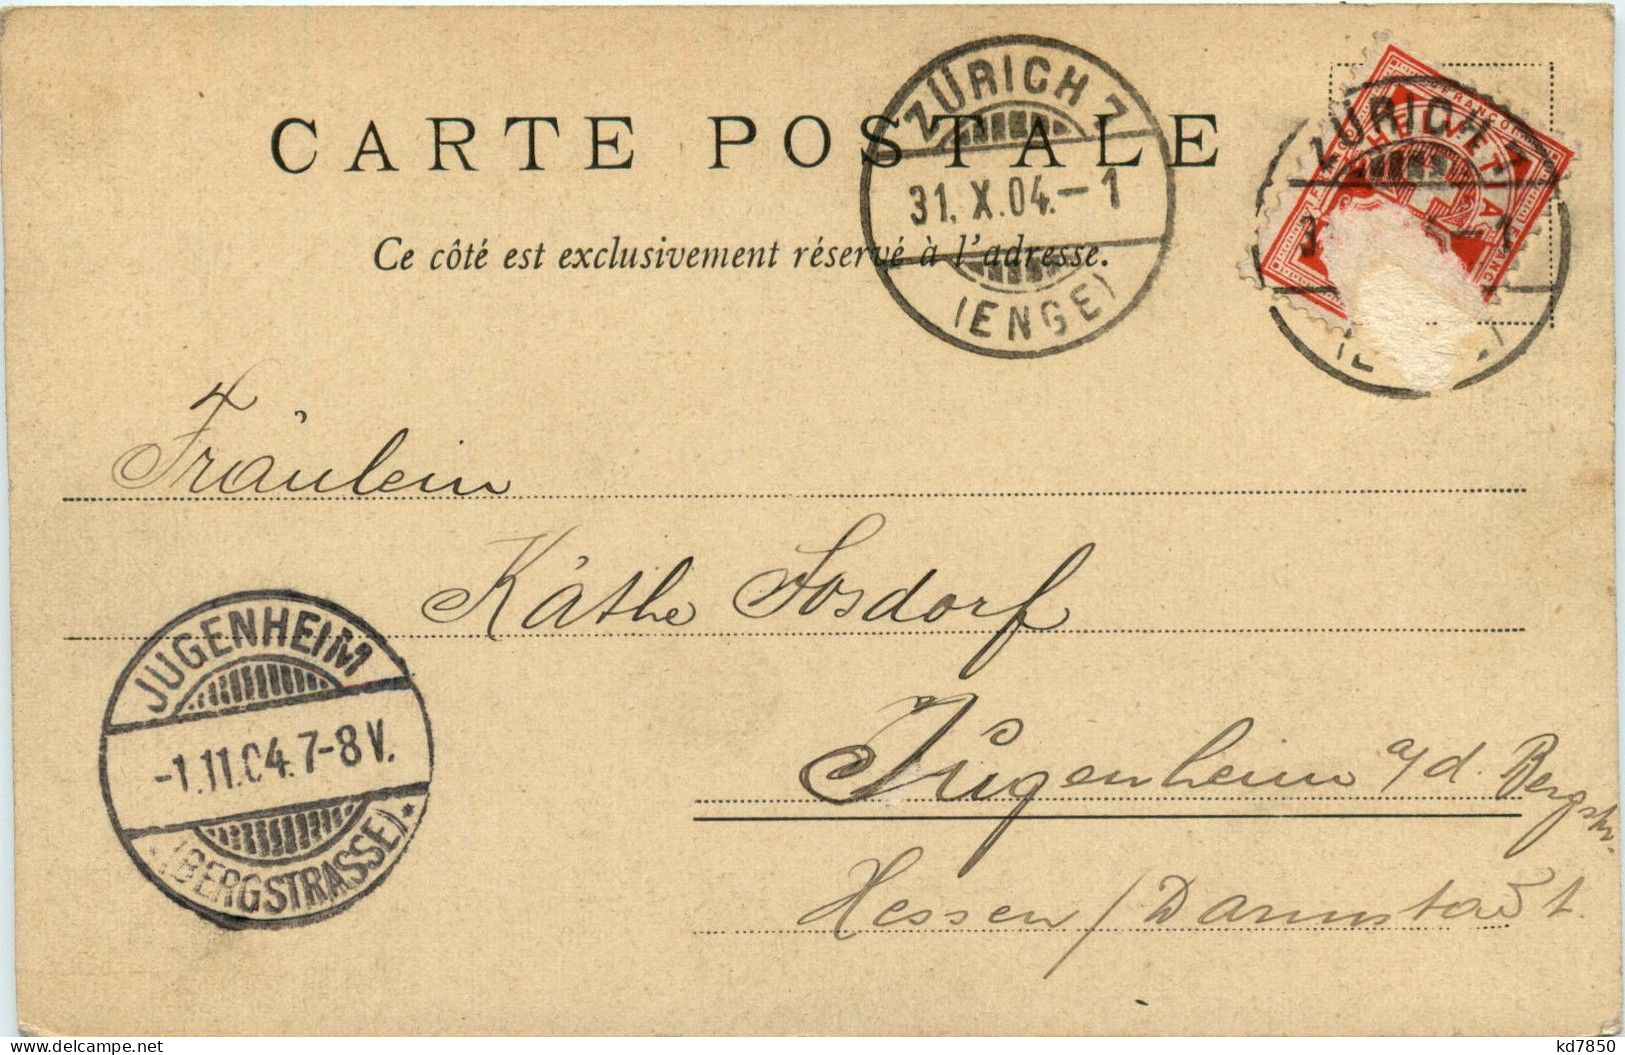 CARTE POSTALE
Ce côté est exclusivement réservé à l'adresse.
ZÜRICH 7
31. X. 04. – 1
(ENGE)
ZÜRICH 7
HELVETIA
Fräulein
Käthe Fosdorf
Jugenheim a/d. Bergstr.
Hessen / Darmstadt.
JUGENHEIM
-1.11.04. 7-8 V.
*(BERGSTRASSE)*
www.delcampe.net
kd7850